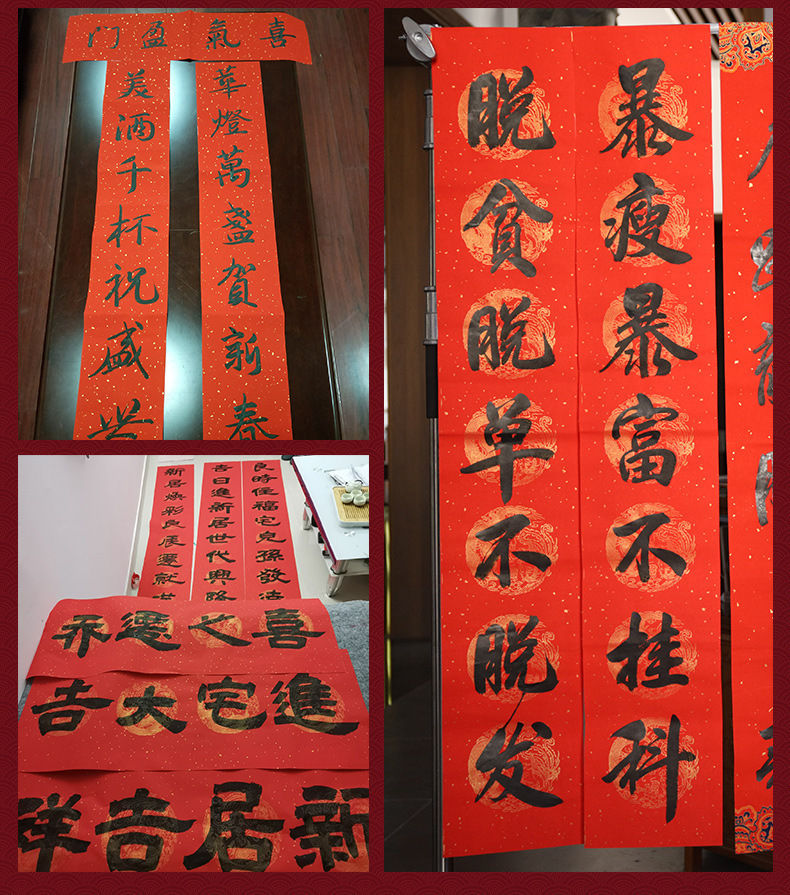 喜氣盈门
華燈萬盞賀新春
美酒千杯祝盛世
暴瘦暴富不挂科
脱贫脱单不脱发
良時住福宅兒孫發
吉日進新居世代興
新居焕彩良
喜之遷乔
進宅大吉
新居吉祥